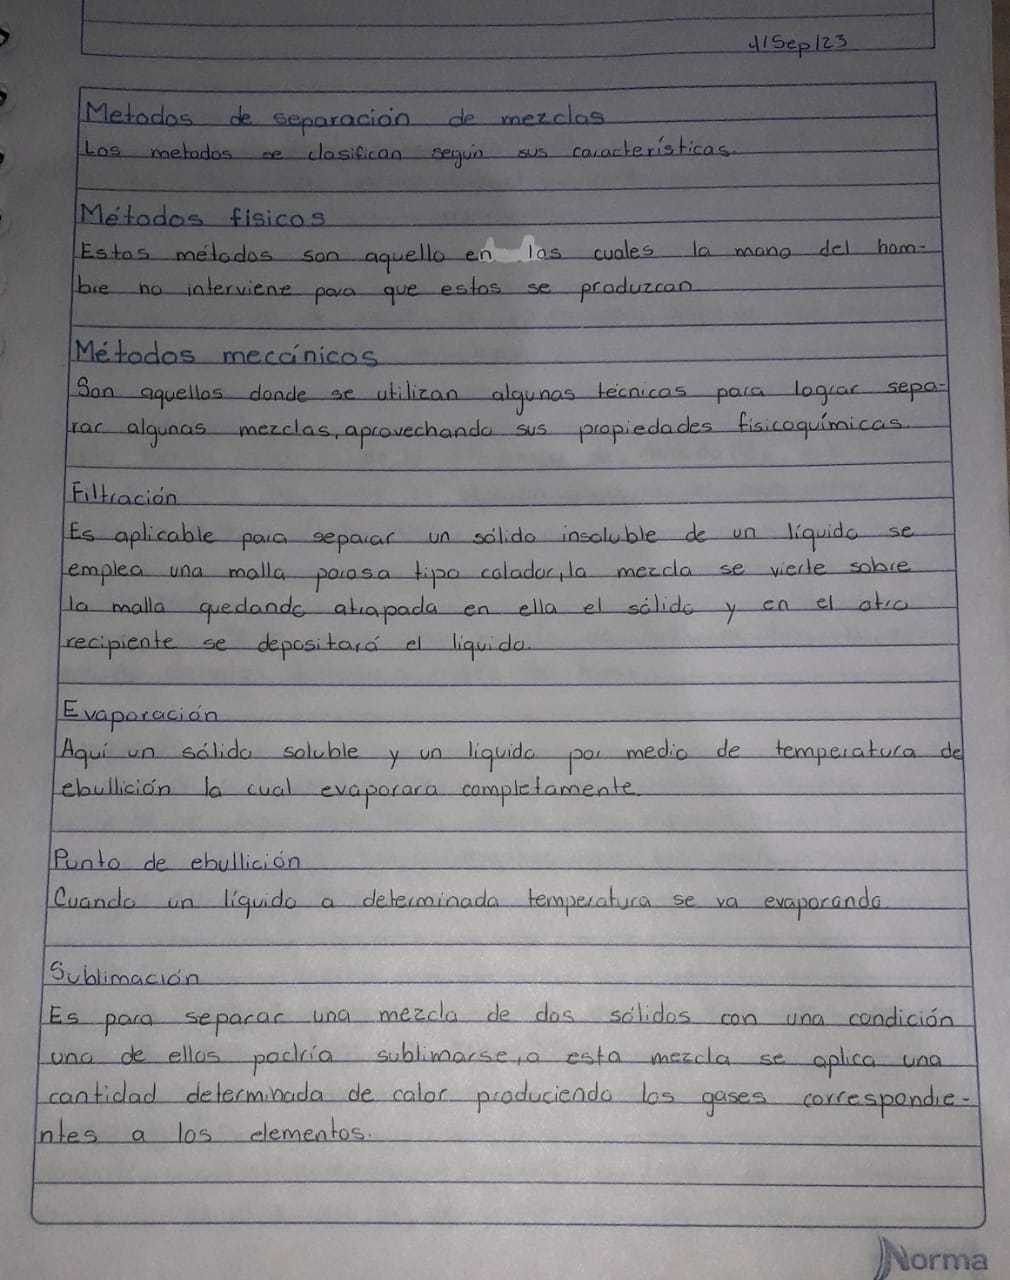 4/Sep/23
Metodos de separación de mezclas
Los metodos se clasifican según sus características.
Métodos físicos
Estos métodos son aquello en los cuales la mano del hom-
bre no interviene para que estos se produzcan
Métodos mecánicos
Son aquellos donde se utilizan algunas técnicas para lograr sepa-
rar algunas mezclas, aprovechando sus propiedades fisicoquímicas.
Filtración
Es aplicable para separar un sólido insoluble de un líquido se
emplea una malla porosa tipo colador, la mezcla se vierte sobre
la malla quedando atrapada en ella el sólido y en el otro
recipiente se depositará el líquido.
Evaporación
Aquí un sólido soluble y un líquido por medio de temperatura de
ebullición la cual evaporara completamente.
Punto de ebullición
Cuando un líquido a determinada temperatura se va evaporando.
Sublimación
Es para separar una mezcla de dos sólidos con una condición
uno de ellos podría sublimarse, a esta mezcla se aplica una
cantidad determinada de calor produciendo los gases correspondie-
ntes a los elementos.
Norma